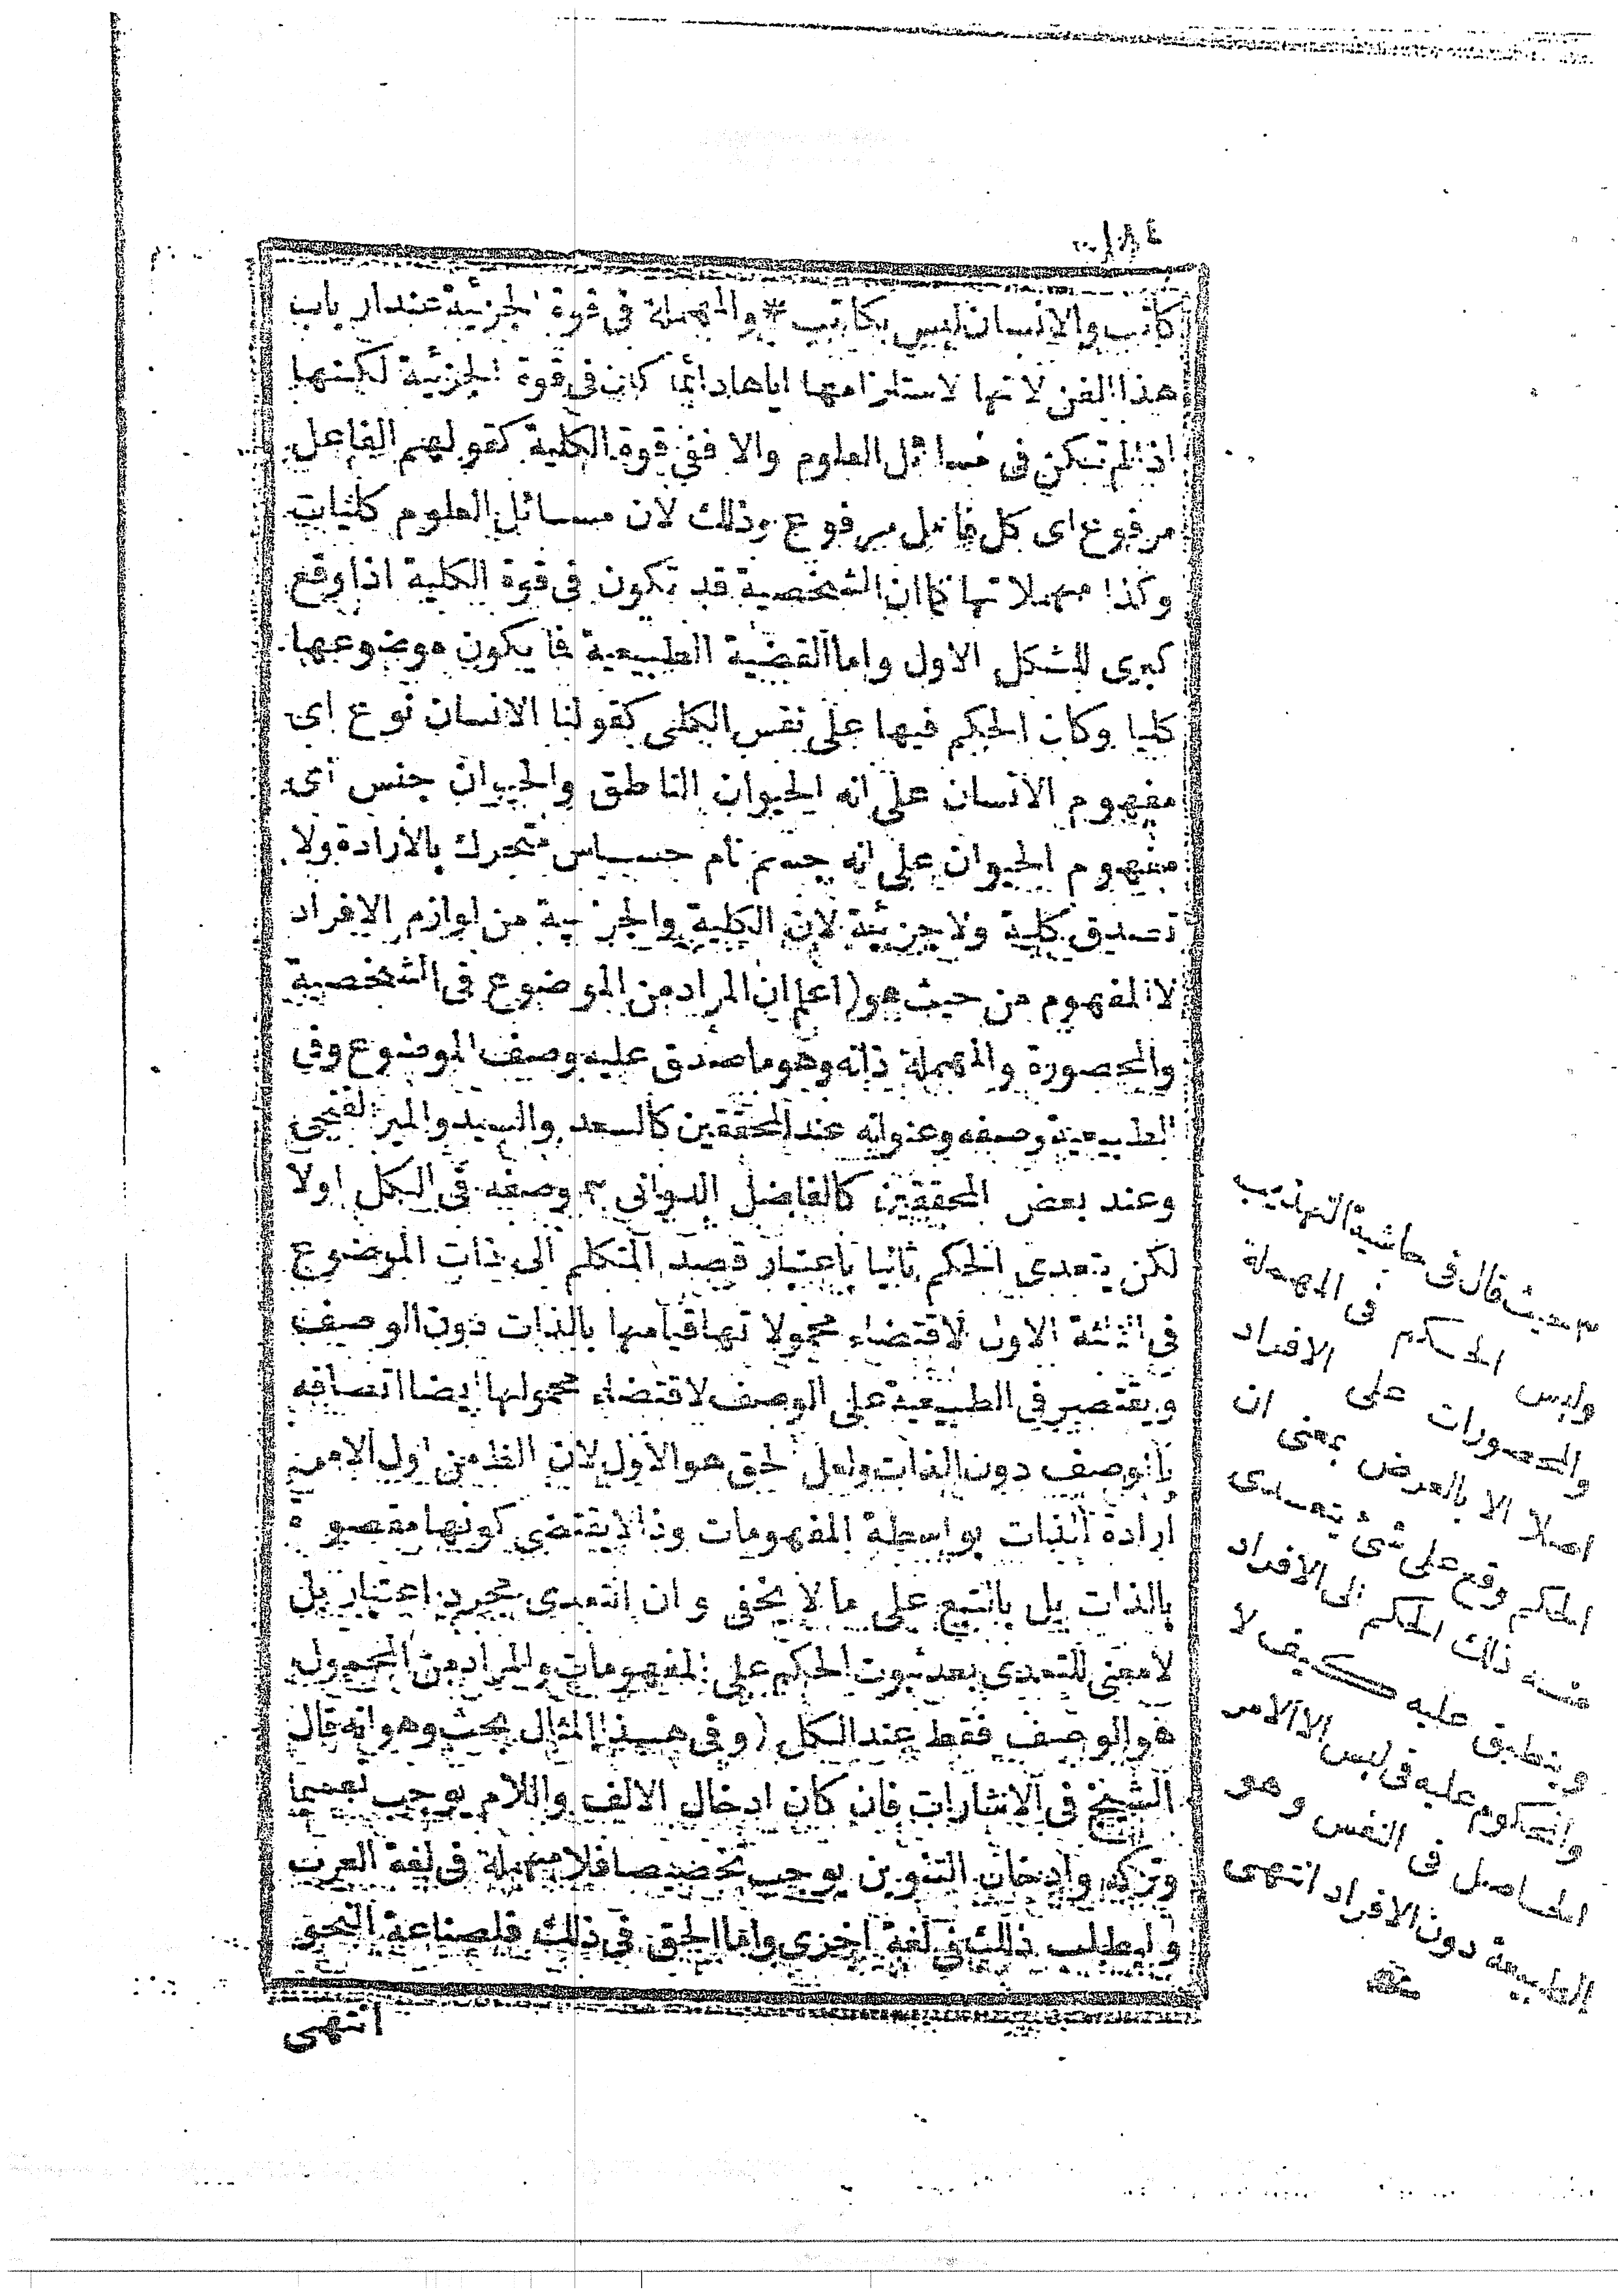 كاتب والانسان ليس بكاتب * والمهملة فى قوة الجزئية عند ارباب
هذا الفن لانها لاستلزامها اياها دائما كانت فى قوة الجزئية لكنها
اذا لم تكن فى مسائل العلوم والا ففى قوة الكلية كقولهم الفاعل
مرفوع اى كل فاعل مرفوع وذلك لان مسائل العلوم كليات
وكذا مهملاتها كما ان الشخصية قد تكون فى قوة الكلية اذا وقع
كبرى للشكل الاول واما القضية الطبيعية فما يكون موضوعها
كليا وكان الحكم فيها على نفس الكلى كقولنا الانسان نوع اى
مفهوم الانسان على انه الحيوان الناطق والحيوان جنس اى
مفهوم الحيوان على انه جسم نام حساس متحرك بالارادة ولا
تصدق كلية ولا جزئية لان الكلية والجزئية من لوازم الافراد
لا المفهوم من حيث هو (اعلم ان المراد من الموضوع فى الشخصية
والمحصورة والمهملة ذاته وهو ما صدق عليه وصف الموضوع وفى
الطبيعية وصفه وعنوانه عند المحققين كالسعد والسيد والمير الفتحى
وعند بعض المحققين كالفاضل الدوانى ٣ وصفه فى الكل اولا
لكن يتعدى الحكم ثانيا باعتبار قصد المتكلم الى ذات الموضوع
فى الثلثة الاول لاقتضاء محمولاتها قيامها بالذات دون الوصف
ويقتصر فى الطبيعية على الوصف لاقتضاء محمولها ايضا اتصافه
بالوصف دون الذات ولعل الحق هو الاول لان الظ من اول الامر
ارادة الذات بواسطة المفهومات وذا لا يقتضى كونها مقصودة
بالذات بل بالتبع على ما لا يخفى وان التعدى مجرد اعتبار بل
لا معنى للتعدى بعد ثبوت الحكم على المفهومات والمراد من المحمول
هو الوصف فقط عند الكل (وفى هذا المثال بحث وهو انه قال
الشيخ فى الاشارات فان كان ادخال الالف واللام يوجب تعميما
وتركه وادخال التنوين يوجب تخصيصا فلا مهملة فى لغة العرب
وليطلب ذلك فى لغة اخرى واما الحق فى ذلك فلصناعة النحو
انتهى
٣ حيث قال فى حاشية التهذيب
وليس الحكم فى المهملة
والمحصورات على الافراد
اصلا الا بالعرض بمعنى ان
الحكم وقع على شئ يتعدى
منه ذلك الحكم الى الافراد
وينطبق عليه كيف لا
والمحكوم عليه فى ليس الا الامر
الحاصل فى النفس وهو
الطبيعة دون الافراد انتهى